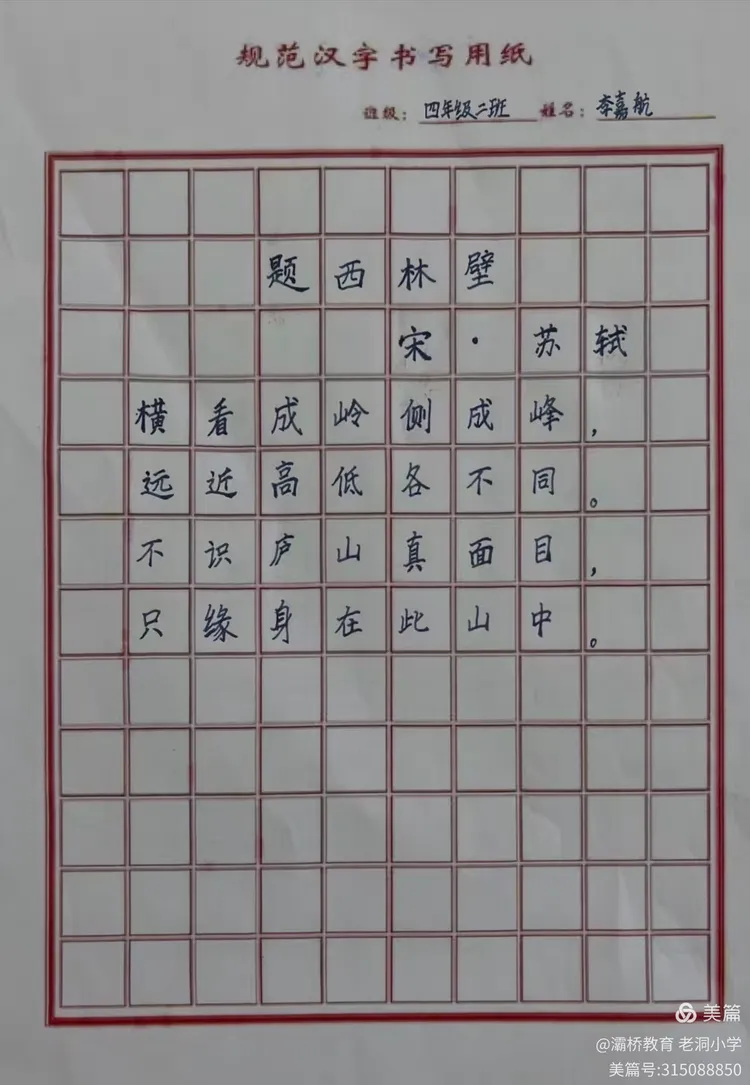 规范汉字书写用纸
班级：四年级二班 姓名：李嘉航
题西林壁
宋·苏轼
横看成岭侧成峰，
远近高低各不同。
不识庐山真面目，
只缘身在此山中。
美篇
@灞桥教育 老洞小学
美篇号:315088850